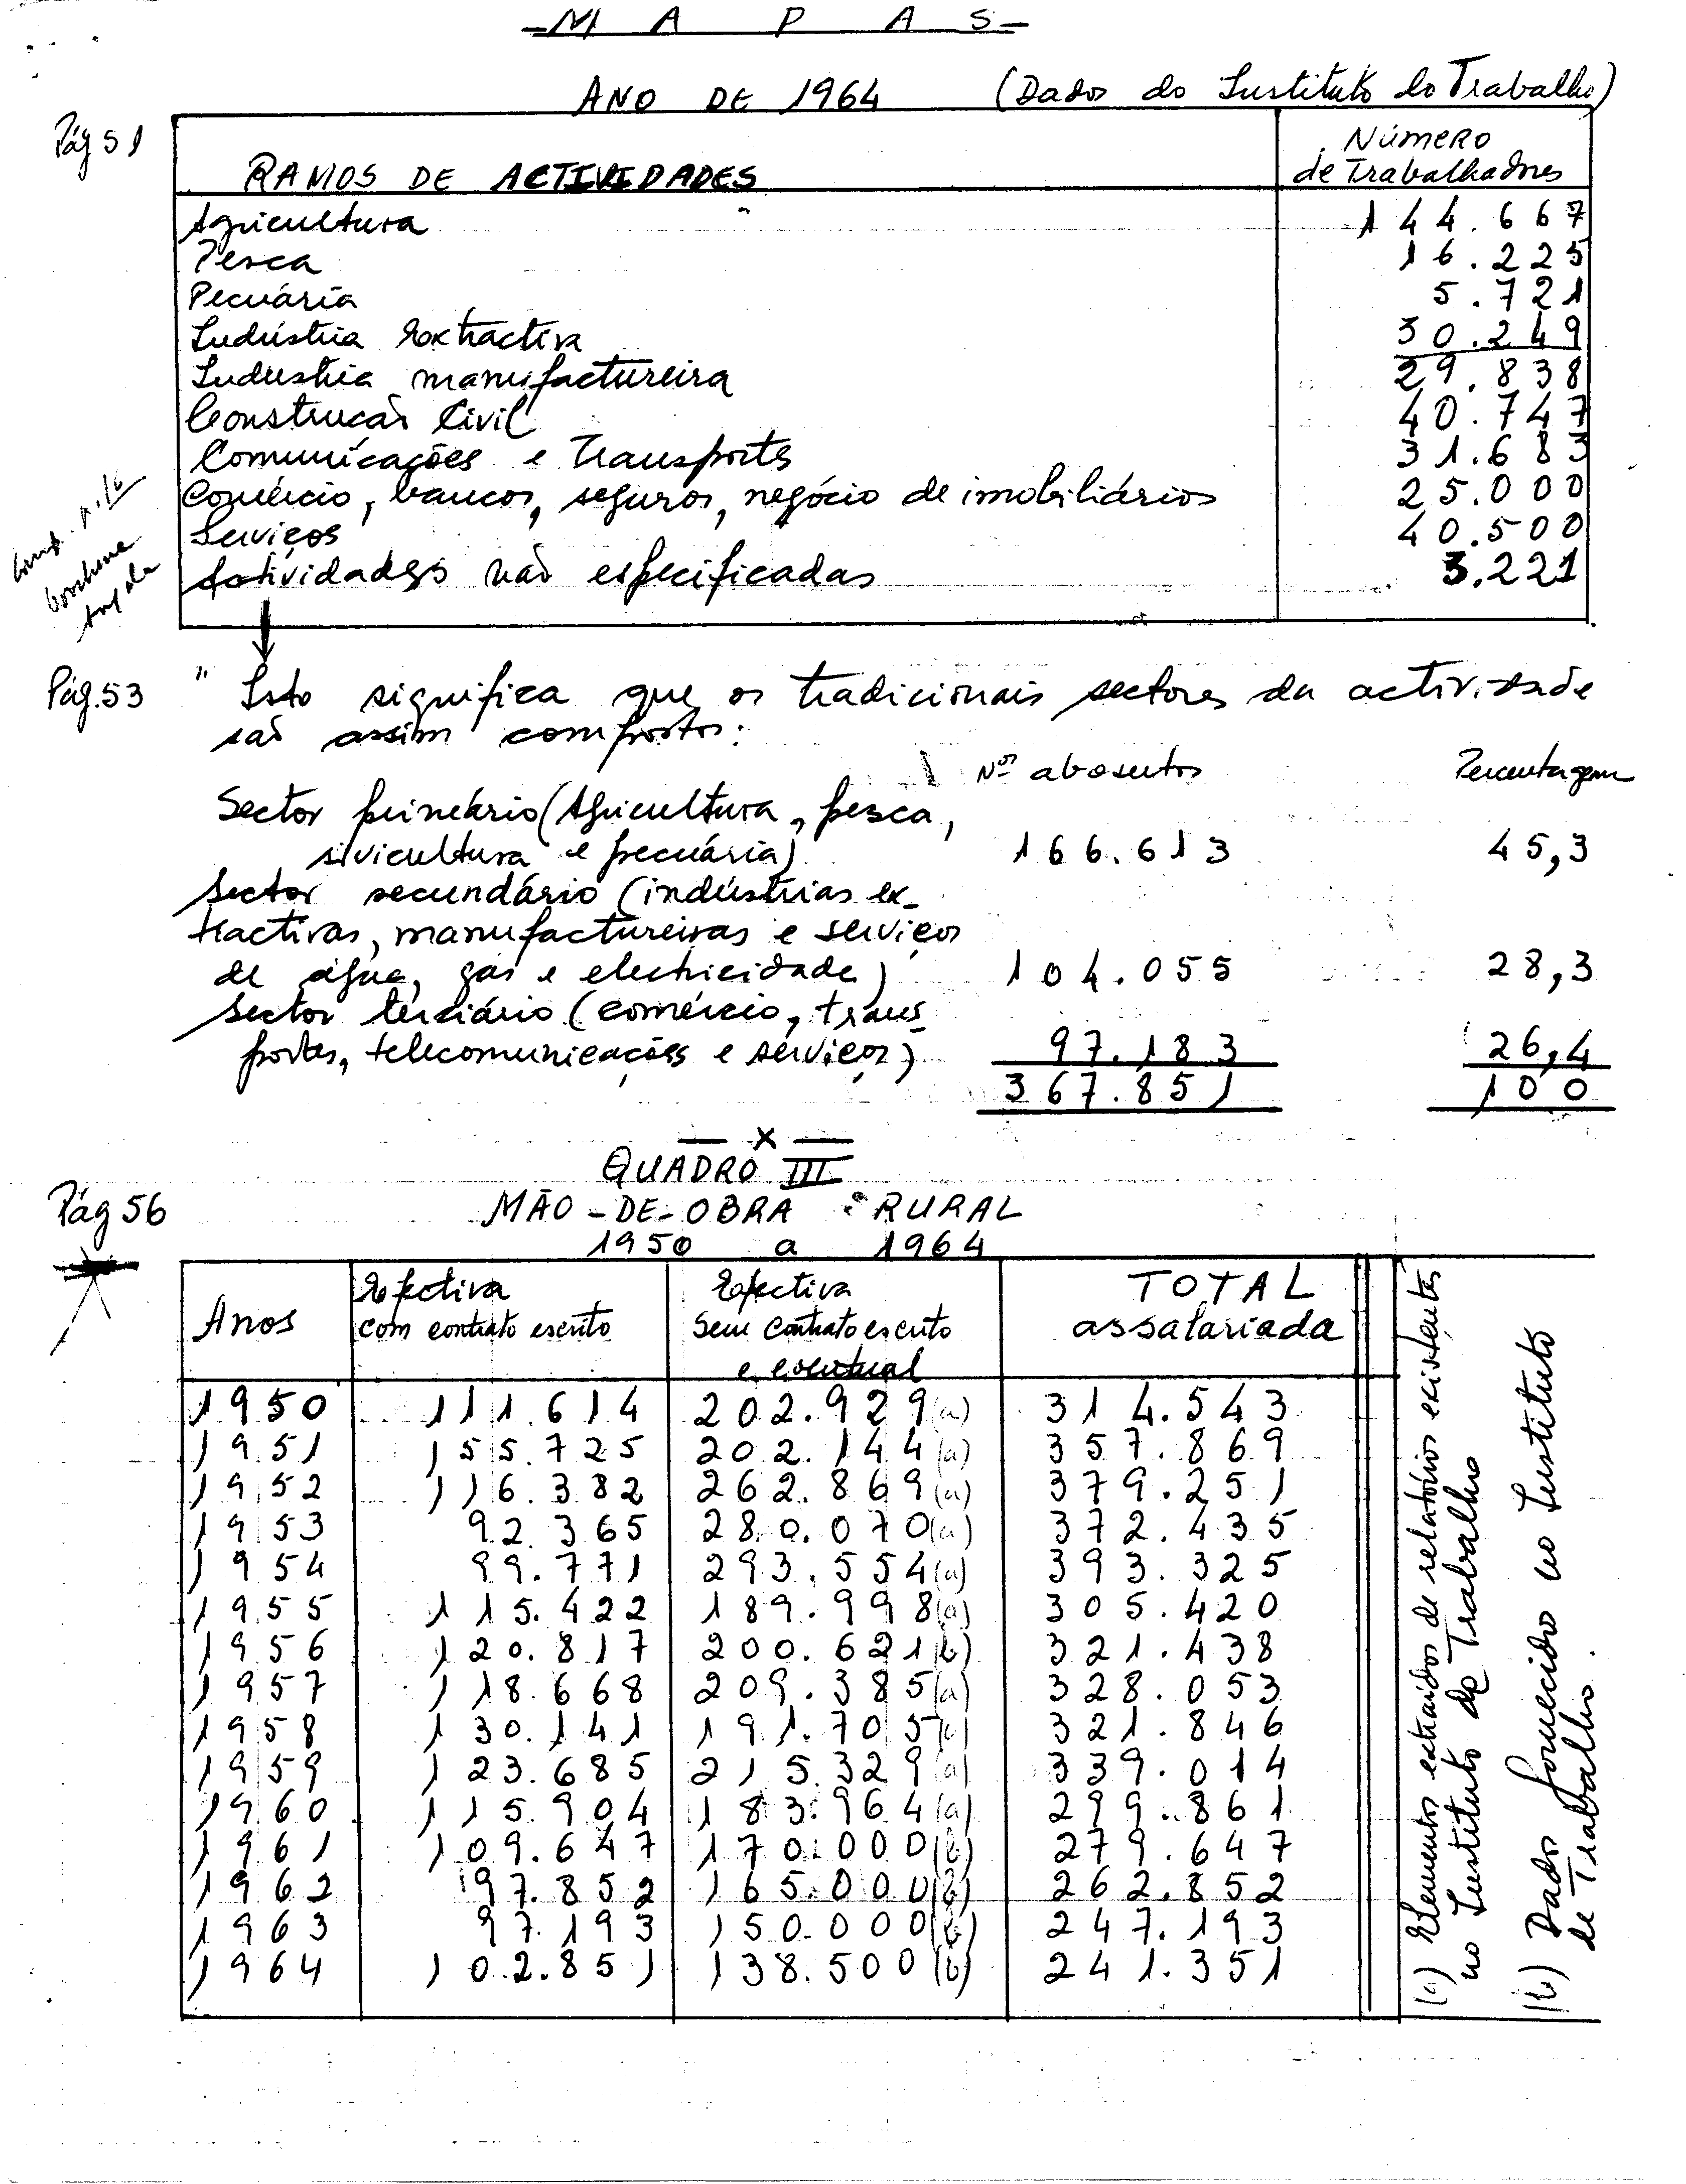 - M A P A S -
ANO DE 1964 (Dados do Instituto do Trabalho)
Pág 51
RAMOS DE ACTIVIDADES
Número
de Trabalhadores
Agricultura 144.667
Pesca 16.225
Pecuária 5.721
Indústria Extractiva 30.249
Industria manufactureira 29.838
Construcão Civil 40.747
Comunicações e Transportes 31.683
Comércio, bancos, seguros, negócio de imobiliários 25.000
Serviços 40.500
Actividades não especificadas 3.221
Pág.53 " Isto significa que os tradicionais sectores da actividade
são assim compostos:
Nos absolutos Percentagem
Sector primário (Agricultura, pesca,
sivicultura e pecuária) 166.613 45,3
Sector secundário (indústrias ex-
tractivas, manufactureiras e serviços
de água, gás e electricidade) 104.055 28,3
Sector terciário (comércio, trans-
portes, telecomunicações e serviços) 97.183 26,4
367.851 100
— x —
QUADRO III
Pág 56
MÃO-DE-OBRA RURAL
1950 a 1964
Anos
Efectiva
com contrato escrito
Efectiva
sem contrato escrito
e eventual
TOTAL
assalariada
1950 111.614 202.929(a) 314.543
1951 155.725 202.144(a) 357.869
1952 116.382 262.869(a) 379.251
1953 92.365 280.070(a) 372.435
1954 99.771 293.554(a) 393.325
1955 115.422 189.998(a) 305.420
1956 120.817 200.621(b) 321.438
1957 118.668 209.385(a) 328.053
1958 130.141 191.705 321.846
1959 123.685 215.329(a) 339.014
1960 115.904 183.964(a) 299.861
1961 109.647 170.000(b) 279.647
1962 97.852 165.000(b) 262.852
1963 97.193 150.000(b) 247.193
1964 102.851 138.500(b) 241.351
(a) Elementos extraidos de relatórios existentes
no Instituto de Trabalho
(b) Dados fornecidos no Instituto
de Trabalho.